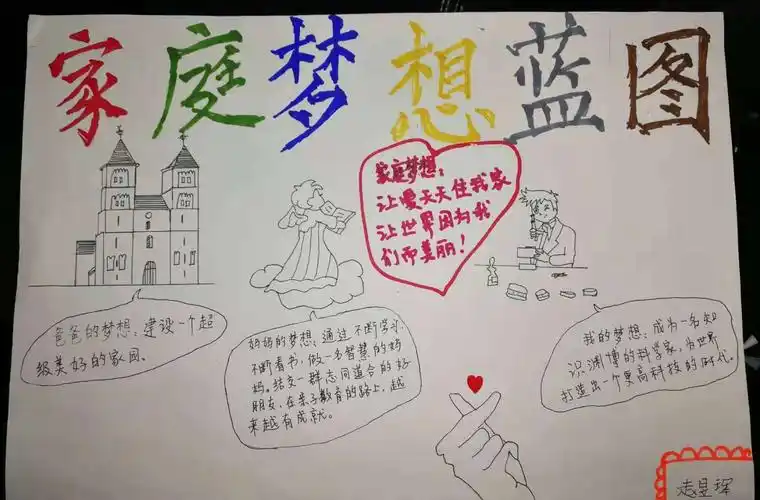 家庭梦想蓝图
家庭梦想：
让爱天天住我家
让世界因为我
们而美丽！
爸爸的梦想：建设一个超
级美好的家园。
妈妈的梦想：通过不断学习，
不断看书，做一名智慧的妈
妈。结交一群志同道合的好
朋友，在亲子教育的路上，越
来越有成就。
我的梦想：成为一名知
识渊博的科学家，为世界
打造出一个更高科技的时代。